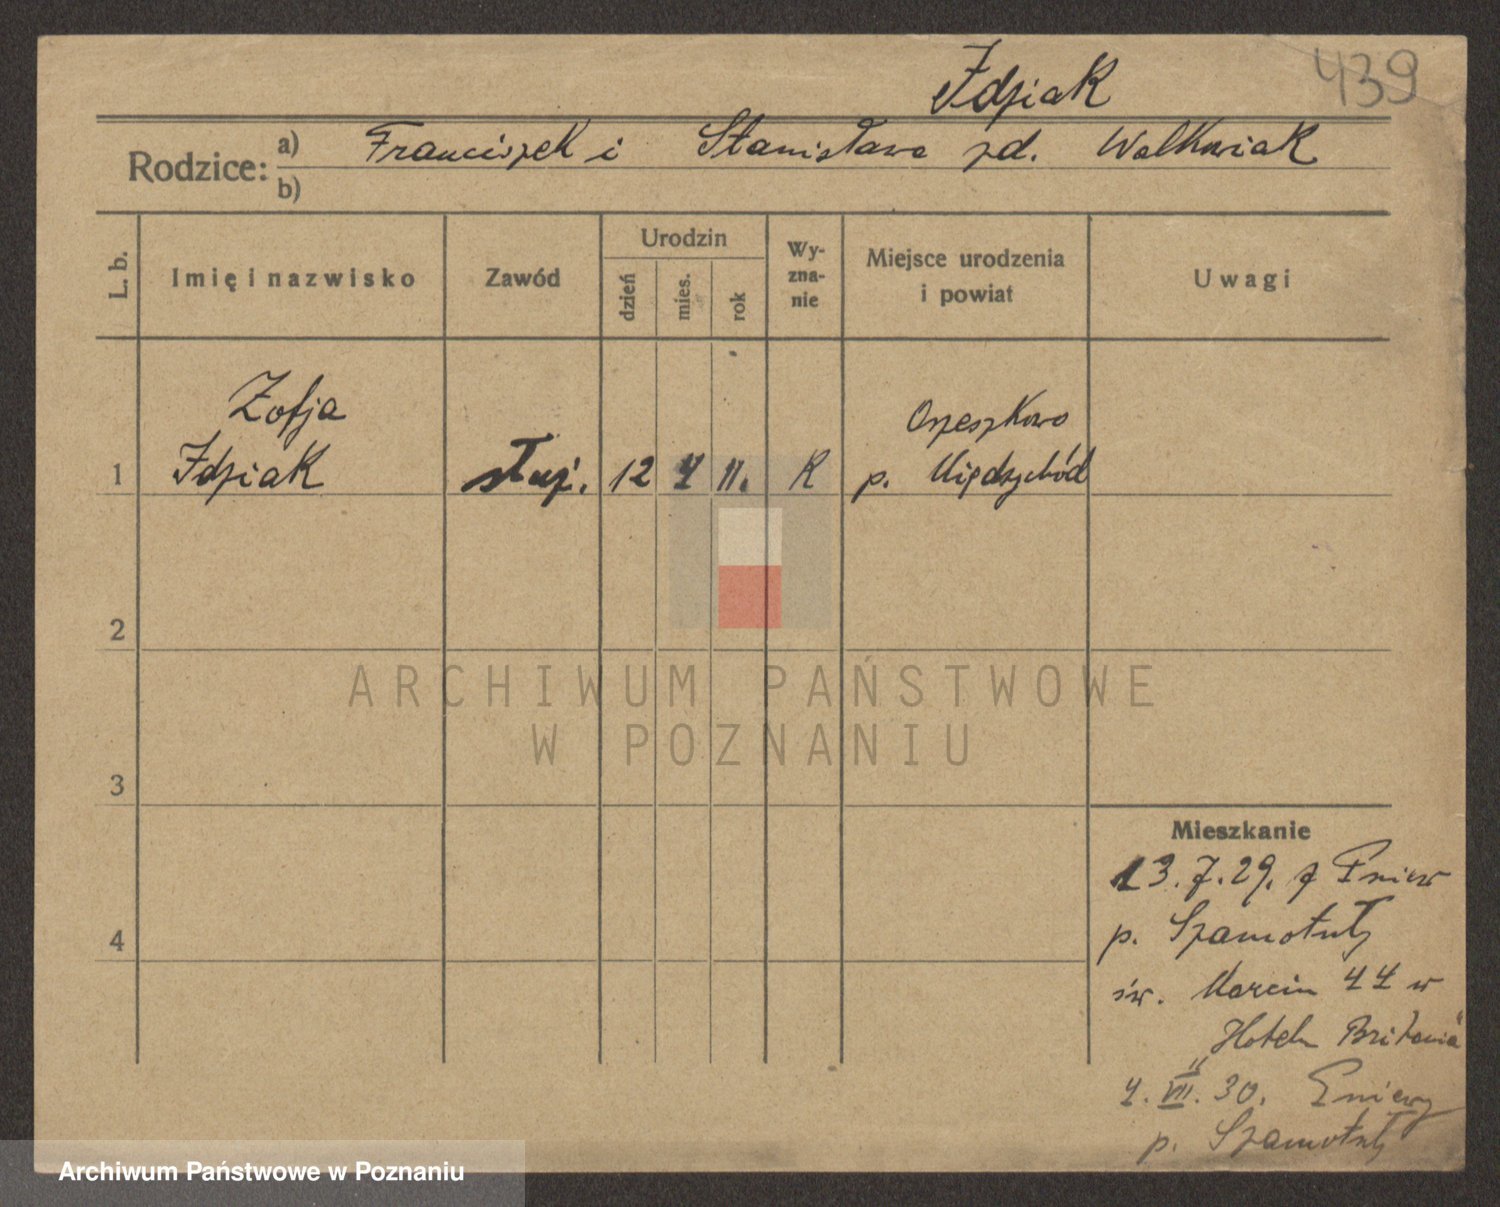 Idziak
439
Rodzice: a) Franciszek i Stanisława zd. Walkowiak
b)
L. b.
Imię i nazwisko
Zawód
Urodzin
dzień
mies.
rok
Wy-
zna-
nie
Miejsce urodzenia
i powiat
Uwagi
Zofja
Orzeszkowo
1 Idziak służ. 12 4 11. K p. Międzychód
2
3
4
Mieszkanie
13.7.29. z Pniew
p. Szamotuły
św. Marcin 44 w
"Hotelu Britania"
4.VII.30. Pniewy
p. Szamotuły
ARCHIWUM PAŃSTWOWE
W POZNANIU
Archiwum Państwowe w Poznaniu